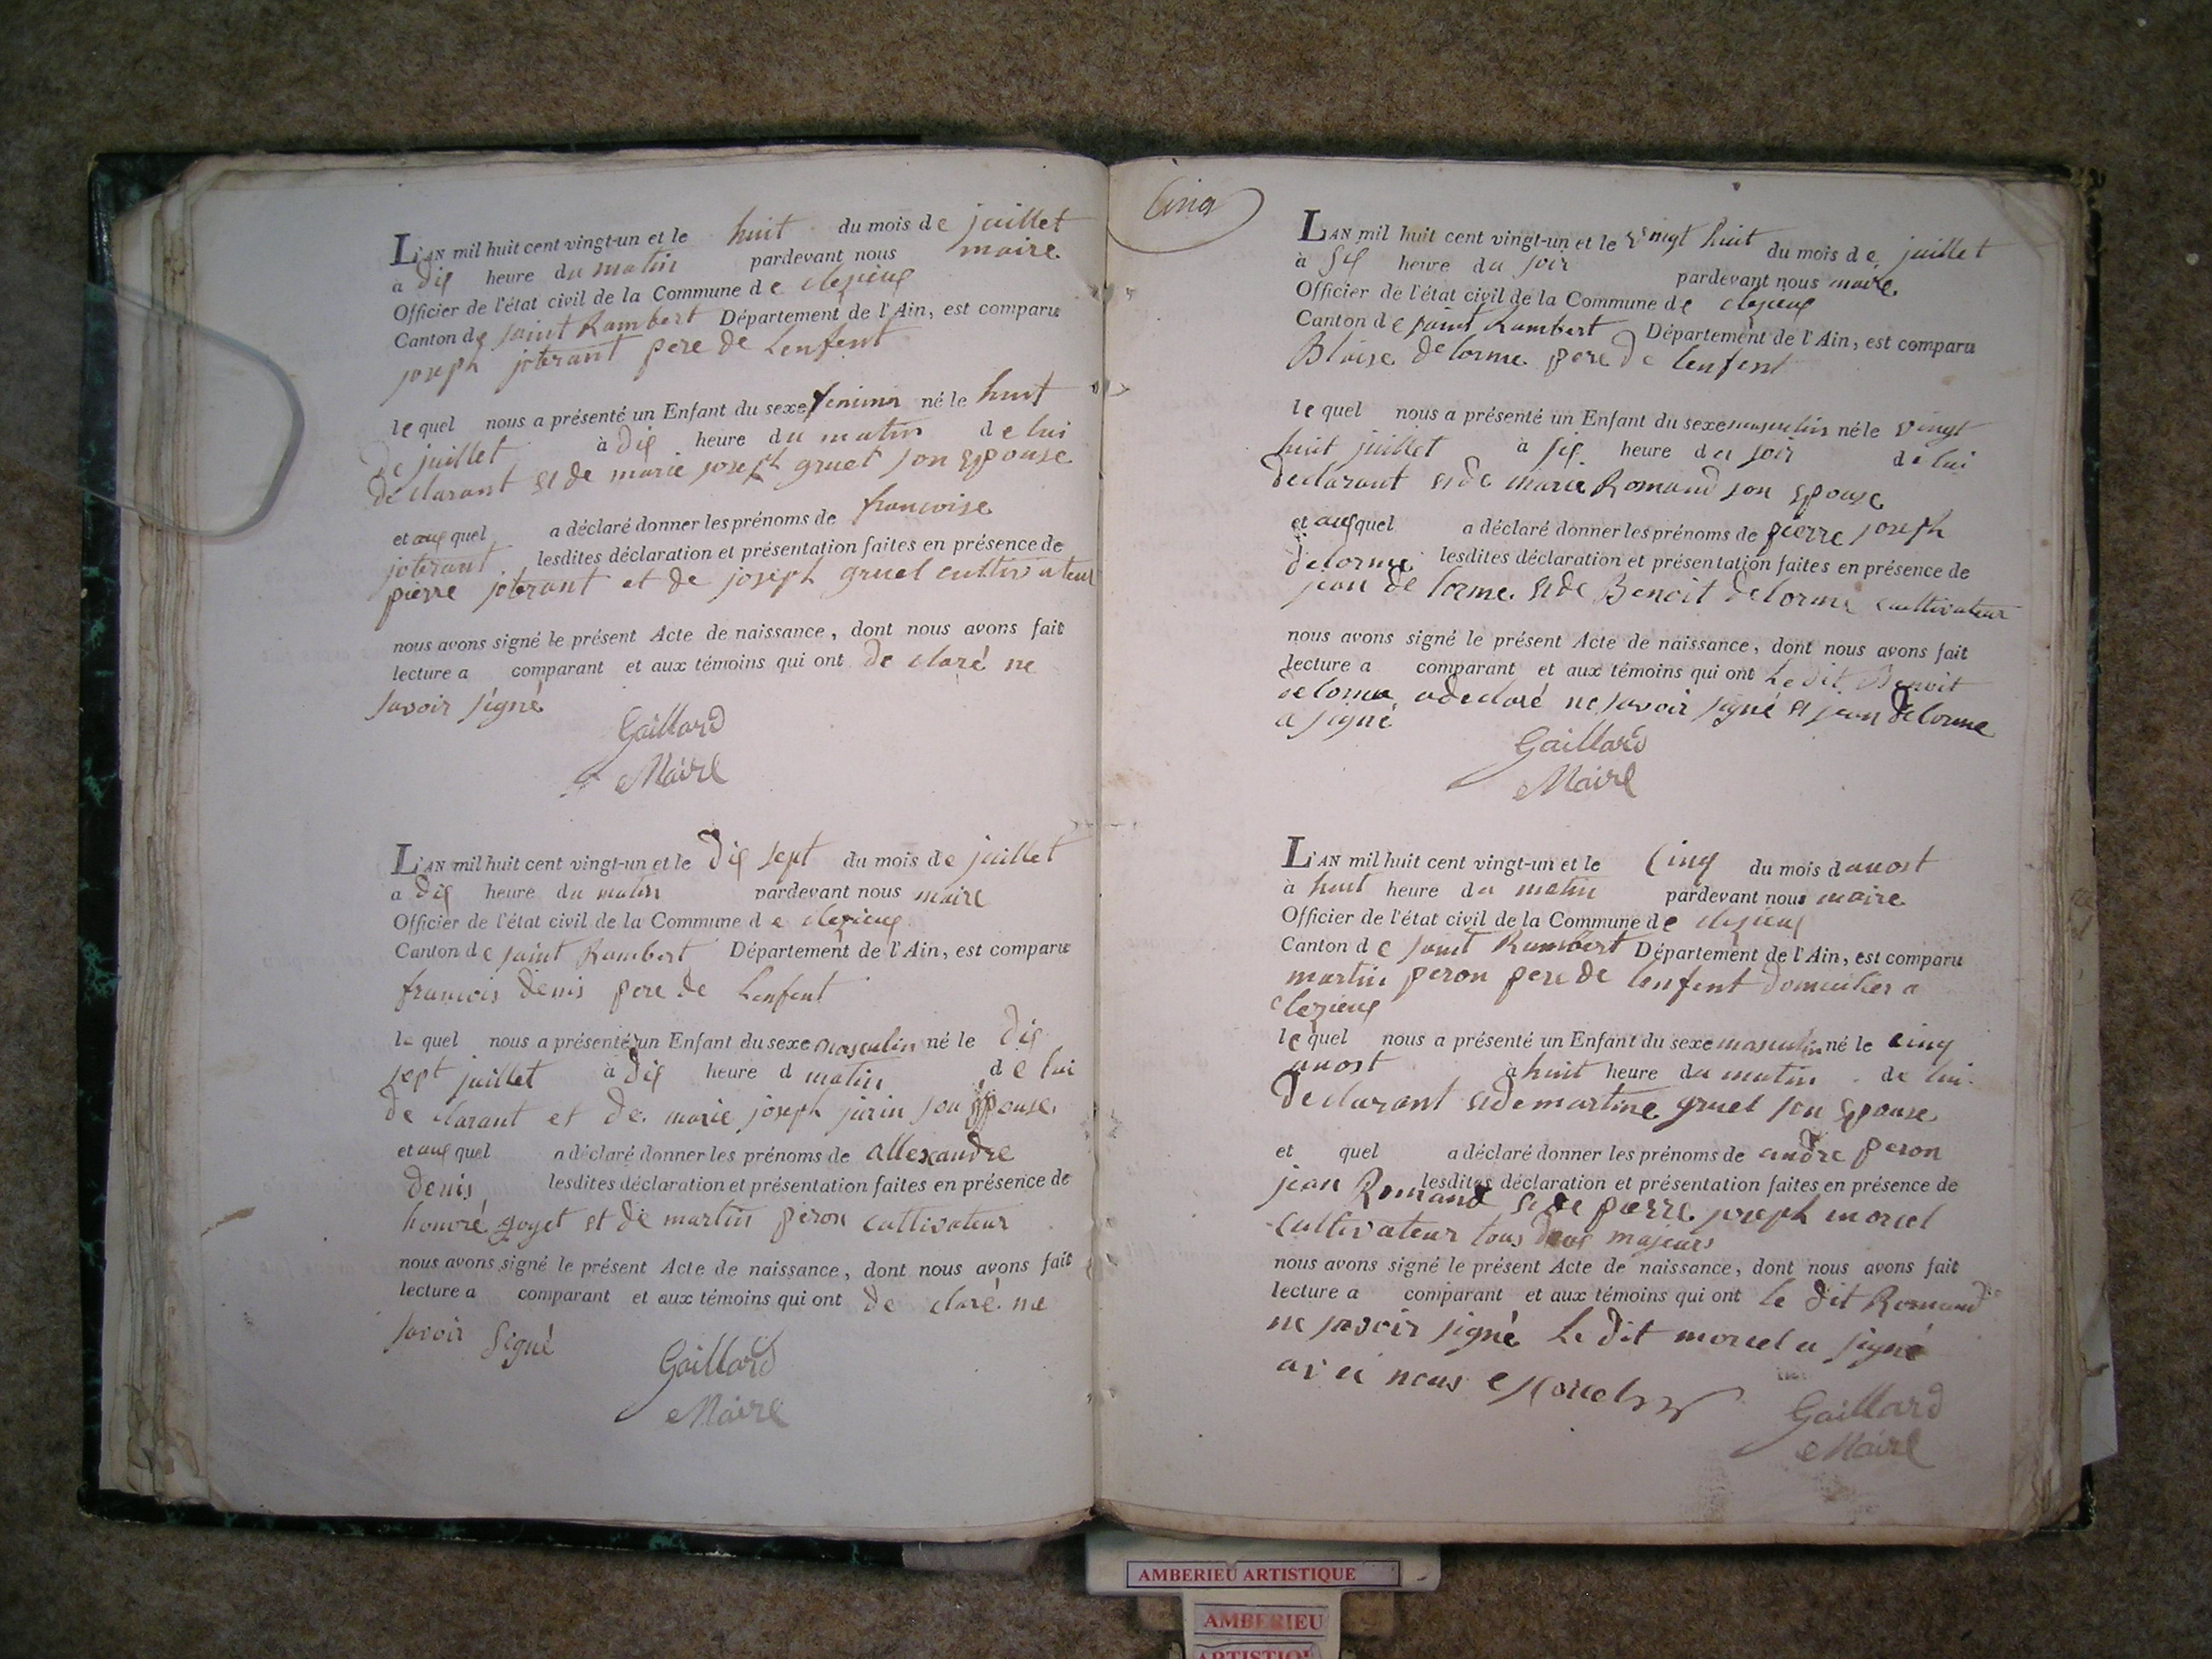 L'AN mil huit cent vingt-un et le huit du mois de juillet
a dix heure du matin pardevant nous maire
Officier de l'état civil de la Commune de clezieux
Canton de saint Rambert Département de l'Ain, est comparu
joseph joterant pere de lenfent
le quel nous a présenté un Enfant du sexe feminin né le huit
de juillet à dix heure du matin de lui
declarant et de marie joseph gruet son epouse
et aux quel a déclaré donner les prénoms de francoise
joterant lesdites déclaration et présentation faites en présence de
pierre joterant et de joseph gruel cultivateur
nous avons signé le présent Acte de naissance, dont nous avons fait
lecture a comparant et aux témoins qui ont de claré ne
savoir signé
Gaillard
Maire
L'AN mil huit cent vingt-un et le dix sept du mois de juillet
a dix heure du matin pardevant nous maire
Officier de l'état civil de la Commune de clezieux
Canton de saint Rambert Département de l'Ain, est comparu
francois denis pere de lenfent
le quel nous a présenté un Enfant du sexe masculin né le dix
sept juillet à dix heure d matin de lui
de clarant et de marie joseph jarin son epouse
et aux quel a déclaré donner les prénoms de allexandre
denis lesdites déclaration et présentation faites en présence de
honoré goyet et de martin peron cultivateur
nous avons signé le présent Acte de naissance, dont nous avons fait
lecture a comparant et aux témoins qui ont de claré ne
savoir signé
Gaillard
Maire
Cinq
L'AN mil huit cent vingt-un et le vingt huit du mois de juillet
à six heure du soir pardevant nous maire
Officier de l'état civil de la Commune de clezieux
Canton de saint Rambert Département de l'Ain, est comparu
Blaise delorme pere de lenfent
le quel nous a présenté un Enfant du sexe masculin né le vingt
huit juillet à six heure du soir de lui
declarant et de marie Romand son epouse
et aux quel a déclaré donner les prénoms de pierre joseph
delorme lesdites déclaration et présentation faites en présence de
jean de lorme et de Benoit delorme cultivateur
nous avons signé le présent Acte de naissance, dont nous avons fait
lecture a comparant et aux témoins qui ont Le dit Benoit
delorme adeclaré ne savoir signé et jean delorme
a signé
Gaillard
Maire
L'AN mil huit cent vingt-un et le Cinq du mois dauost
à huit heure du matin pardevant nous maire
Officier de l'état civil de la Commune de clezieux
Canton de saint Rambert Département de l'Ain, est comparu
martin peron pere de lenfent domicilier a
clezieux
le quel nous a présenté un Enfant du sexe masculin né le cinq
auost à huit heure du matin de lui
declarant et de martine gruel son epouse
et quel a déclaré donner les prénoms de andre peron
lesdites déclaration et présentation faites en présence de
jean Romand et de pierre joseph morcel
cultivateur tous deux majeurs
nous avons signé le présent Acte de naissance, dont nous avons fait
lecture a comparant et aux témoins qui ont le dit Romand
ne savoir signé Le dit morcel a signé
avec nous Morcel
Gaillard
Maire
AMBERIEU ARTISTIQUE
AMBERIEU
ARTISTIQU